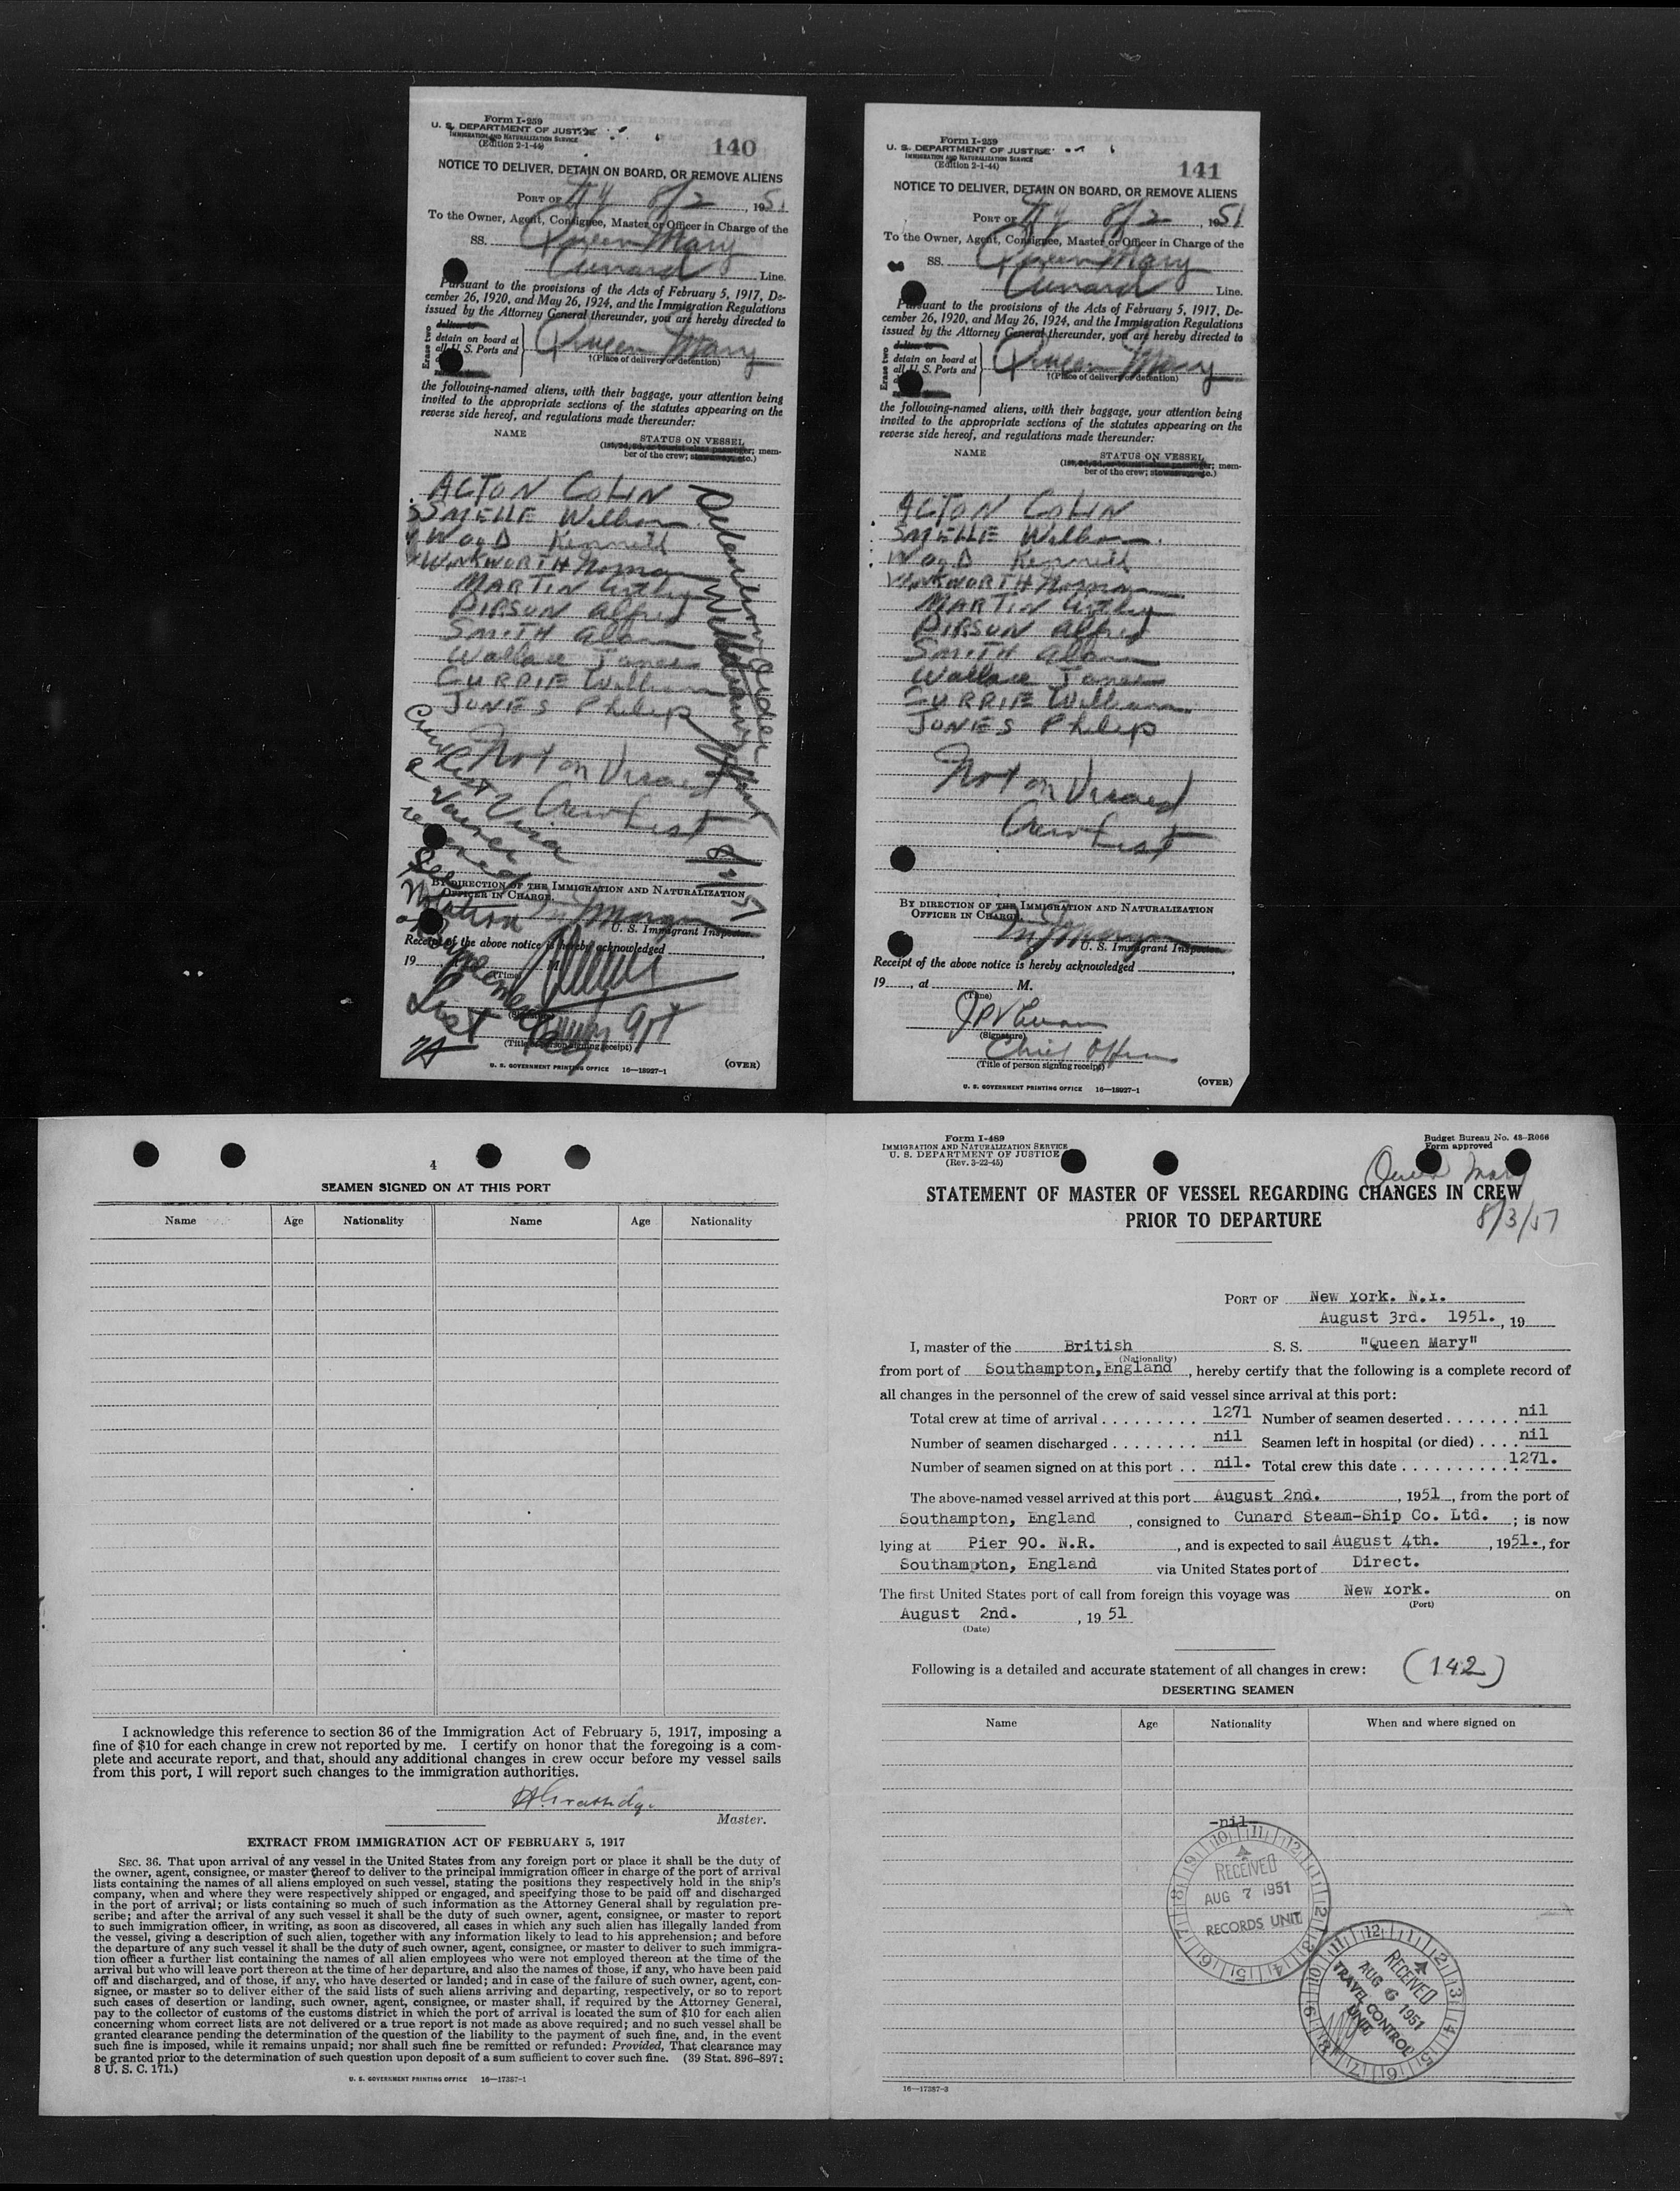 Form I-259
U. S. DEPARTMENT OF JUSTICE
IMMIGRATION AND NATURALIZATION SERVICE
(Edition 2-1-44)
140
NOTICE TO DELIVER, DETAIN ON BOARD, OR REMOVE ALIENS
PORT OF NY 8/2, 1951
To the Owner, Agent, Consignee, Master or Officer in Charge of the
SS. Queen Mary
Cunard Line.
Pursuant to the provisions of the Acts of February 5, 1917, De-
cember 26, 1920, and May 26, 1924, and the Immigration Regulations
issued by the Attorney General thereunder, you are hereby directed to
Erase two
deliver to
detain on board at
all U. S. Ports and
Queen Mary
†(Place of delivery or detention)
the following-named aliens, with their baggage, your attention being
invited to the appropriate sections of the statutes appearing on the
reverse side hereof, and regulations made thereunder:
NAME
STATUS ON VESSEL
(1st, 2d, 3d, or tourist class passenger; mem-
ber of the crew; stowaway, etc.)
ACTON COLIN
SMELLE William
WOOD Kenneth
WINKWORTH Norman
MARTIN Arthur
PIRSON Alfred
SMITH Alan
Wallace James
CURRIE William
JONES Philip
Not on Visaed
Crew List
Detention Order
Withdrawn
8/2/51
Crew List
Visa
received
See
Notation
on
Supplemental
List
BY DIRECTION OF THE IMMIGRATION AND NATURALIZATION
OFFICER IN CHARGE.
U. S. Immigrant Inspector.
Receipt of the above notice is hereby acknowledged
19 M.
(Time)
(Signature)
(Title of person signing receipt)
U. S. GOVERNMENT PRINTING OFFICE 16—18927-1
(OVER)
Form I-259
U. S. DEPARTMENT OF JUSTICE
IMMIGRATION AND NATURALIZATION SERVICE
(Edition 2-1-44)
141
NOTICE TO DELIVER, DETAIN ON BOARD, OR REMOVE ALIENS
PORT OF NY 8/2, 1951
To the Owner, Agent, Consignee, Master or Officer in Charge of the
SS. Queen Mary
Cunard Line.
Pursuant to the provisions of the Acts of February 5, 1917, De-
cember 26, 1920, and May 26, 1924, and the Immigration Regulations
issued by the Attorney General thereunder, you are hereby directed to
Erase two
deliver to
detain on board at
all U. S. Ports and
Queen Mary
†(Place of delivery or detention)
the following-named aliens, with their baggage, your attention being
invited to the appropriate sections of the statutes appearing on the
reverse side hereof, and regulations made thereunder:
NAME
STATUS ON VESSEL
(1st, 2d, 3d, or tourist class passenger; mem-
ber of the crew; stowaway, etc.)
ACTON COLIN
SMELLE William
WOOD Kenneth
WINKWORTH Norman
MARTIN Arthur
PIRSON Alfred
SMITH Alan
Wallace James
CURRIE William
JONES Philip
Not on Visaed
Crew List
BY DIRECTION OF THE IMMIGRATION AND NATURALIZATION
OFFICER IN CHARGE.
U. S. Immigrant Inspector.
Receipt of the above notice is hereby acknowledged
19, at M.
(Time)
(Signature)
Chief Officer
(Title of person signing receipt)
U. S. GOVERNMENT PRINTING OFFICE 16—18927-1
(OVER)
4
SEAMEN SIGNED ON AT THIS PORT
Name Age Nationality Name Age Nationality
I acknowledge this reference to section 36 of the Immigration Act of February 5, 1917, imposing a
fine of $10 for each change in crew not reported by me. I certify on honor that the foregoing is a com-
plete and accurate report, and that, should any additional changes in crew occur before my vessel sails
from this port, I will report such changes to the immigration authorities.
Master.
EXTRACT FROM IMMIGRATION ACT OF FEBRUARY 5, 1917
SEC. 36. That upon arrival of any vessel in the United States from any foreign port or place it shall be the duty of
the owner, agent, consignee, or master thereof to deliver to the principal immigration officer in charge of the port of arrival
lists containing the names of all aliens employed on such vessel, stating the positions they respectively hold in the ship's
company, when and where they were respectively shipped or engaged, and specifying those to be paid off and discharged
in the port of arrival; or lists containing so much of such information as the Attorney General shall by regulation pre-
scribe; and after the arrival of any such vessel it shall be the duty of such owner, agent, consignee, or master to report
to such immigration officer, in writing, as soon as discovered, all cases in which any such alien has illegally landed from
the vessel, giving a description of such alien, together with any information likely to lead to his apprehension; and before
the departure of any such vessel it shall be the duty of such owner, agent, consignee, or master to deliver to such immigra-
tion officer a further list containing the names of all alien employees who were not employed thereon at the time of the
arrival but who will leave port thereon at the time of her departure, and also the names of those, if any, who have been paid
off and discharged, and of those, if any, who have deserted or landed; and in case of the failure of such owner, agent, con-
signee, or master so to deliver either of the said lists of such aliens arriving and departing, respectively, or so to report
such cases of desertion or landing, such owner, agent, consignee, or master shall, if required by the Attorney General,
pay to the collector of customs of the customs district in which the port of arrival is located the sum of $10 for each alien
concerning whom correct lists are not delivered or a true report is not made as above required; and no such vessel shall be
granted clearance pending the determination of the question of the liability to the payment of such fine, and, in the event
such fine is imposed, while it remains unpaid; nor shall such fine be remitted or refunded: Provided, That clearance may
be granted prior to the determination of such question upon deposit of a sum sufficient to cover such fine. (39 Stat. 896–897;
8 U. S. C. 171.)
U. S. GOVERNMENT PRINTING OFFICE 16—17387-1
Form I-489
IMMIGRATION AND NATURALIZATION SERVICE
U. S. DEPARTMENT OF JUSTICE
(Rev. 3-22-45)
Budget Bureau No. 43-R066
Form approved
Queen Mary
8/3/51
STATEMENT OF MASTER OF VESSEL REGARDING CHANGES IN CREW
PRIOR TO DEPARTURE
PORT OF New York. N.Y.
August 3rd. 1951., 19
I, master of the British S. S. "Queen Mary"
(Nationality)
from port of Southampton, England, hereby certify that the following is a complete record of
all changes in the personnel of the crew of said vessel since arrival at this port:
Total crew at time of arrival 1271 Number of seamen deserted nil
Number of seamen discharged nil Seamen left in hospital (or died) nil
Number of seamen signed on at this port nil. Total crew this date 1271.
The above-named vessel arrived at this port August 2nd., 1951, from the port of
Southampton, England, consigned to Cunard Steam-Ship Co. Ltd.; is now
lying at Pier 90. N.R., and is expected to sail August 4th., 1951., for
Southampton, England via United States port of Direct.
The first United States port of call from foreign this voyage was New York. on
(Port)
August 2nd., 1951
(Date)
Following is a detailed and accurate statement of all changes in crew: (142)
DESERTING SEAMEN
Name Age Nationality When and where signed on
-nil-
RECEIVED
AUG 7 1951
RECORDS UNIT
RECEIVED
AUG 6 1951
TRAVEL CONTROL
UNIT
16—17387-3